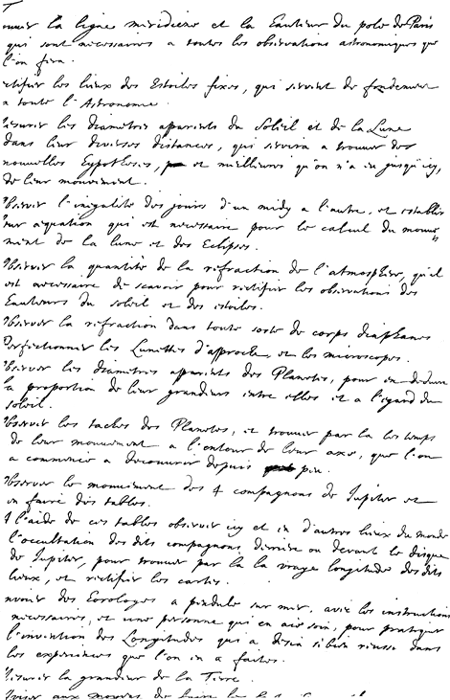 la ligne meridiene et la hauteur du pole de Paris
qui sont necessaires a toutes les observations astronomiques que
l'on fera.
les lieux des Estoiles fixes, qui servent de fondement
a toute l'Astronomie.
les diametres apparents du Soleil et de la Lune
dans leur diverses distances, qui servira a trouver des
nouvelles hypotheses, et meilleures qu'on n'a eu jusqu'icy,
de leur mouvement.
l'inegalité des jours d'un midy a l'autre, et establir
leur aequation qui est necessaire pour le calcul du mouve
ment de la lune et des Eclipses.
Observer la quantité de la refraction de l'atmosphere, qu'il
est necessaire de scavoir pour rectifier les observations des
hauteurs du soleil et des estoiles.
Observer la refraction dans toute sorte de corps diaphanes
Perfectionner les Lunettes d'approche, et les microscopes.
Observer les diametres apparents des Planetes, pour en deduire
la proportion de leur grandeurs entre elles et a l'egard du
soleil.
Observer les taches des Planetes, et trouver par la les temps
de leur mouvement a l'entour de leur axe, que l'on
a commencé a decouvrir depuis peu.
Observer le mouvement des 4 compagnons de Jupiter et
en faire des tables.
A l'aide de ces tables observer icy et en d'autres lieux du monde
l'occultation des dits compagnons, derriere ou devant le disque
de Jupiter, pour trouver par la la vraye longitude des dits
lieux, et rectifier les cartes.
des Horologes a pendule sur mer, avec les instructions
necessaires, et une personne qui en ait soin, pour pratiquer
l'invention des Longitudes qui a desia si bien reussi dans
les experiences que l'on en a faites.
la grandeur de la Terre.